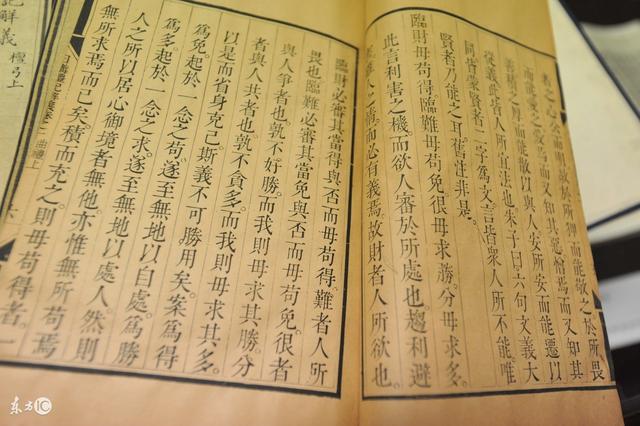 者之心又當用敬故於所狎而能敬之於所畏
而能愛之愛焉而又知其惡憎焉而又知其
善積而能散以與人安所安而能遷以
從義此皆人所宜法也朱子曰六句文義大
同皆蒙賢者二字爲文言皆衆人所不能唯
賢者乃能之耳舊注非是。
臨財毋苟得。臨難毋苟免。很毋求勝。分毋求多。
此言利害之機。而欲人審於所處也。趨利避
人之情而必有義焉。故財者人所欲也。
臨財必審其當得與否而毋苟得。難者人所
畏也。臨難必審其當免與否而毋苟免。很者
與人爭者也。孰不好勝。而我則毋求其勝。分
者與人共者也。孰不貪多。而我則毋求其多。
以是而省身克己。斯義不可勝用矣。案爲得
爲免。起於一念之苟。遂至無地以自處。爲勝
爲多。起於一念之求。遂至無地以處人。然則
人之所以居心御境者無他。亦惟無所苟焉
無所求焉而已矣。積而充之。則毋苟得者。一
日講禮記解義 曲禮上
記解義 檀弓上
东方IC